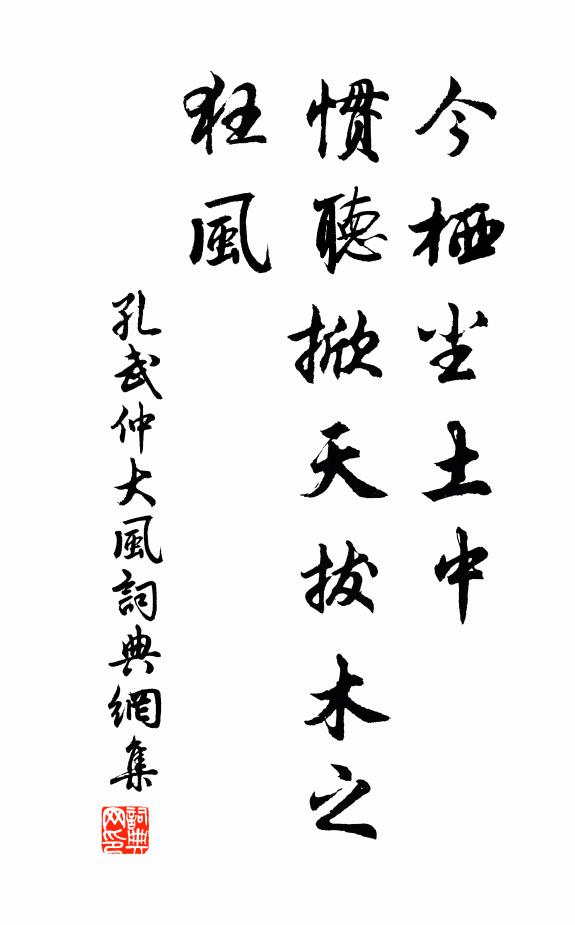 今栖尘土中
慣聽掀天拔木之
狂風
孔武仲大風詞典網集
詞典
网印